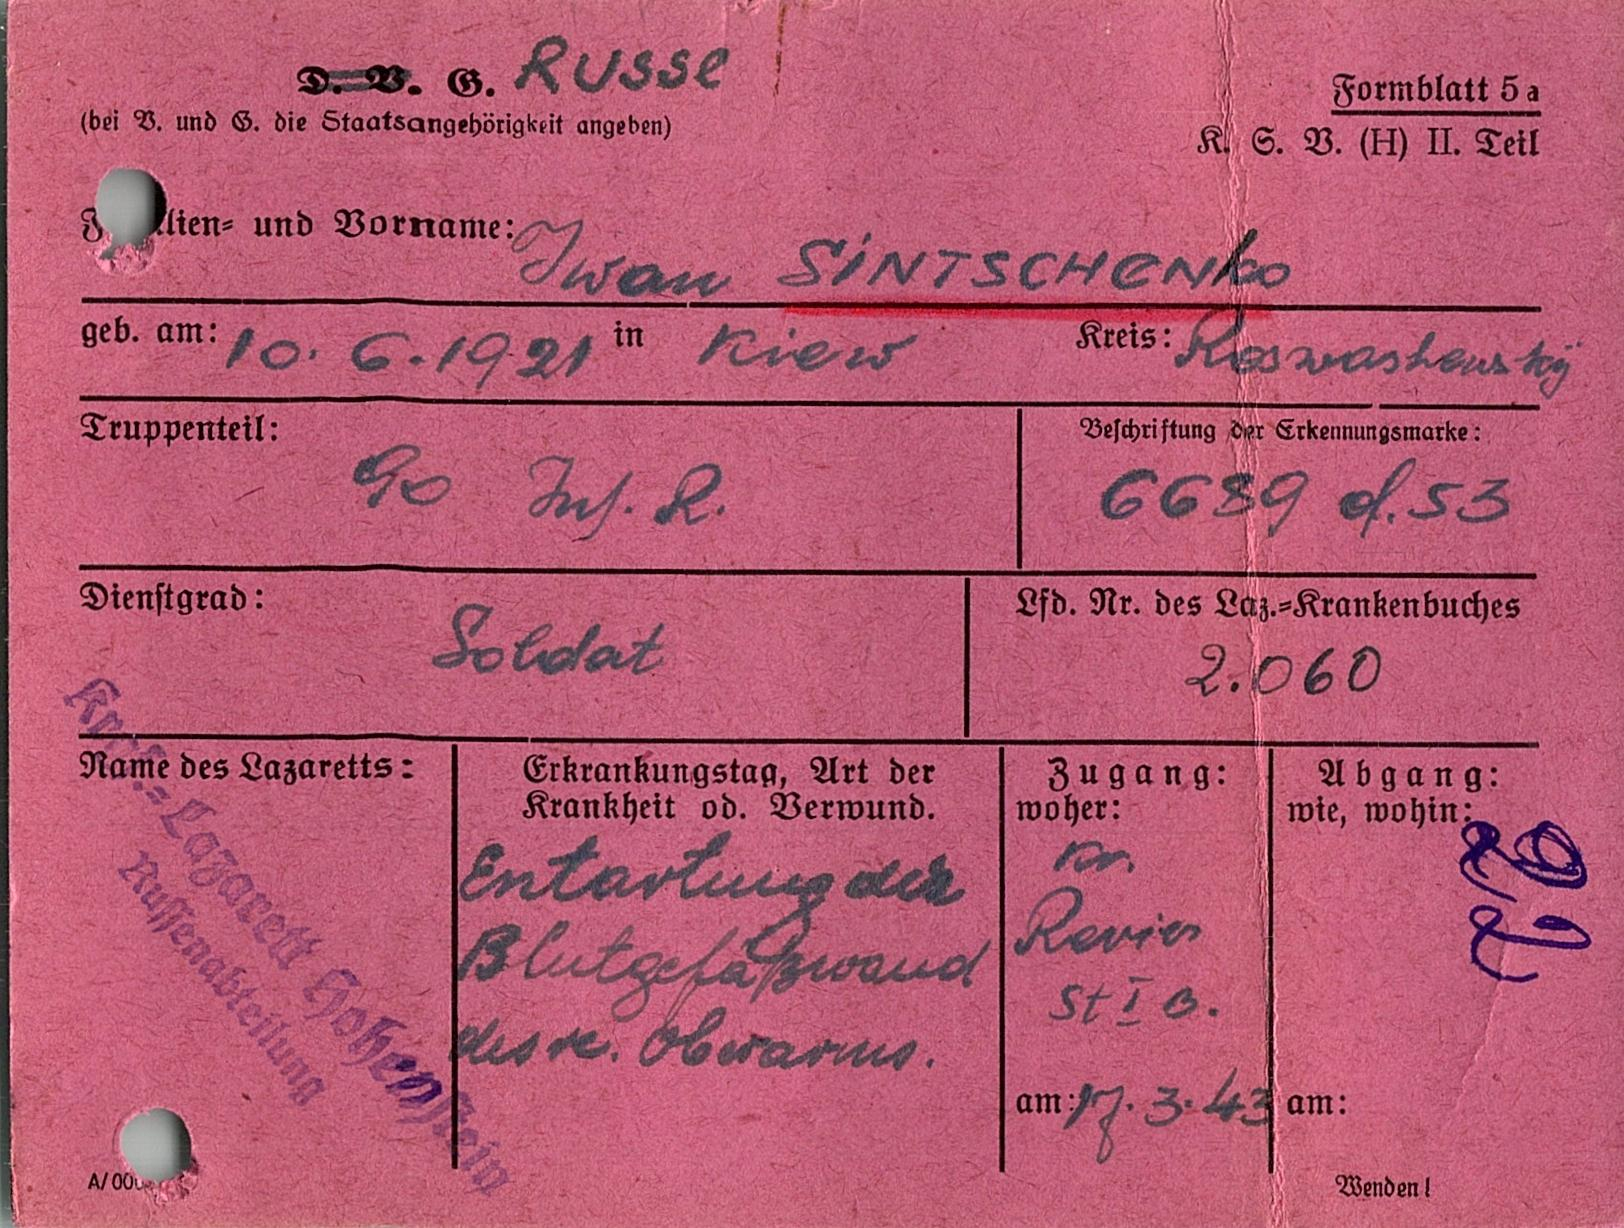 D. V. G. Russe
(bei V. und G. die Staatsangehörigkeit angeben)
Formblatt 5a
K. S. V. (H) II. Teil
Familien- und Vorname: Iwan SINTSCHENko
geb. am: 10. 6. 1921 in Kiew Kreis:
Truppenteil: 90 Inf. R.
Beschriftung der Erkennungsmarke:
6639 d. 53
Dienstgrad: Soldat
Lfd. Nr. des Laz.-Krankenbuches
2.060
Name des Lazaretts:
Kgf.-Lazarett Hohenstein
Russenabteilung
Erkrankungstag, Art der
Krankheit od. Verwund.
Entartung der
Blutgefäßwand
des re. Oberarms.
Zugang:
woher:
Kr.
Revier
St I B.
am: 17. 3. 43
Abgang:
wie, wohin:
am:
A/00
Wenden!